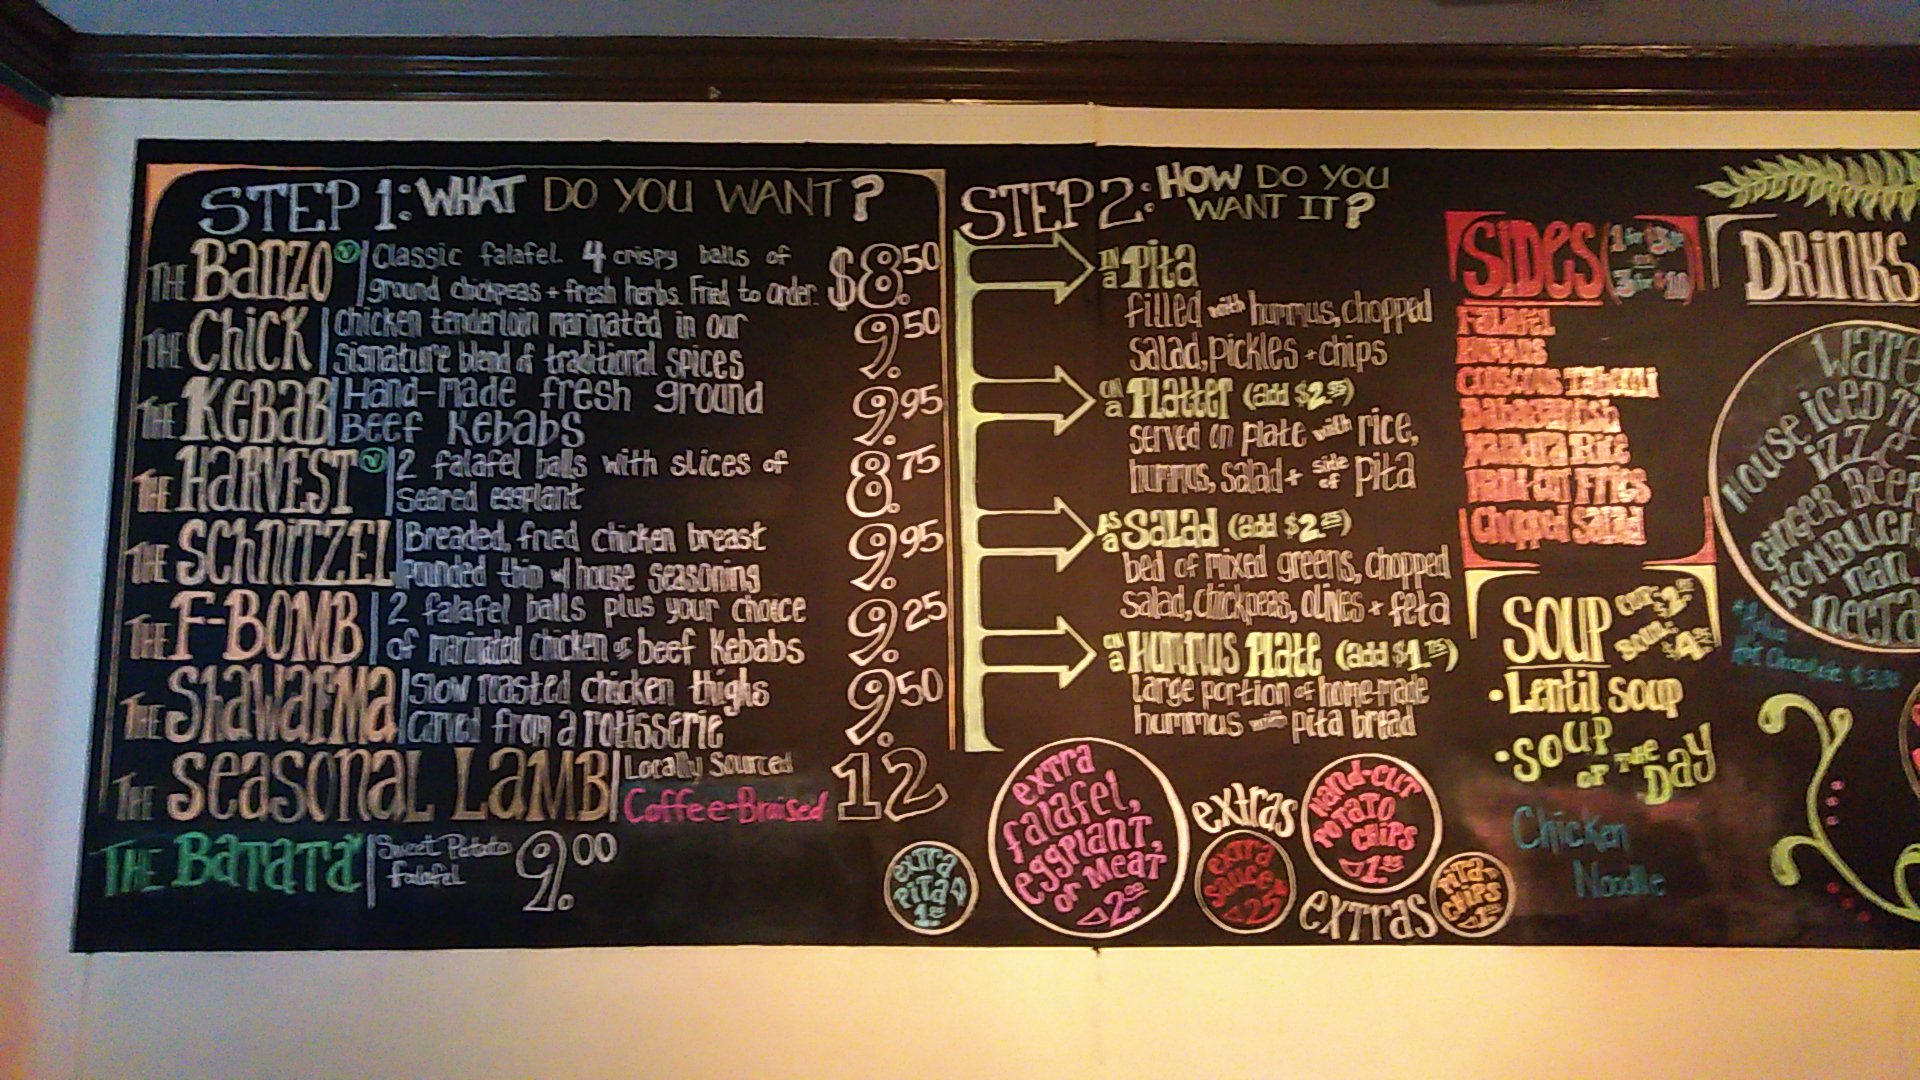 STEP 1: WHAT DO YOU WANT?
THE BANZO V Classic falafel. 4 crispy balls of
ground chickpeas + fresh herbs. Fried to order. $8.50
THE CHICK Chicken tenderloin marinated in our
signature blend of traditional spices 9.50
THE KEBAB Hand-made fresh ground
Beef Kebabs 9.95
THE HARVEST V 2 falafel balls with slices of
seared eggplant 8.75
THE SCHNITZEL Breaded, fried chicken breast
pounded thin w/ house seasoning 9.95
THE F-BOMB 2 falafel balls plus your choice
of marinated chicken or beef Kebabs 9.25
THE Shawarma Slow roasted chicken thighs
carved from a rotisserie 9.50
THE SEASONAL LAMB Locally Sourced
Coffee-Braised 12
THE BATATA Sweet Potato
falafel 9.00
STEP 2: HOW DO YOU
WANT IT?
IN a Pita
filled with hummus, chopped
salad, pickles + chips
ON a Platter (add $2.95)
served on plate with rice,
hummus, salad + side of pita
AS a Salad (add $2.25)
bed of mixed greens, chopped
salad, chickpeas, olives + feta
ON a Hummus Plate (add $1.75)
large portion of home-made
hummus with pita bread
extra
falafel,
eggplant,
or meat
2.00
extra
pita
extras
extra
sauce
.25
HAND-CUT
POTATO
CHIPS
extras
PITA
CHIPS
SIDES
3 for $10
Falafel
Hummus
Couscous Tabouli
Babaganoush
Majadra Rice
Hand-cut Fries
Chopped Salad
SOUP CUP:
BOWL:
• Lentil Soup
• Soup of the Day
Chicken
Noodle
DRINKS
House Iced
IZZE
Ginger Beer
Hot Chocolate